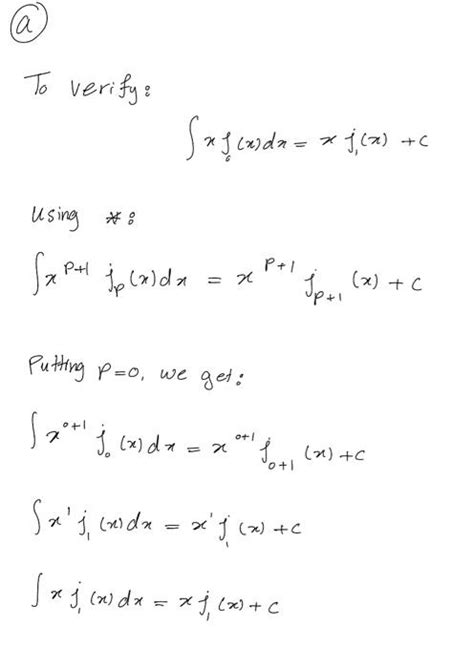 a
To verify:
∫ x j₀(x) dx = x j₁(x) + c
Using *:
∫ x^{p+1} j_p(x) dx = x^{p+1} j_{p+1}(x) + c
Putting p=0, we get:
∫ x^{0+1} j₀(x) dx = x^{0+1} j_{0+1}(x) + c
∫ x¹ j₁(x) dx = x¹ j₁(x) + c
∫ x j₁(x) dx = x j₁(x) + c